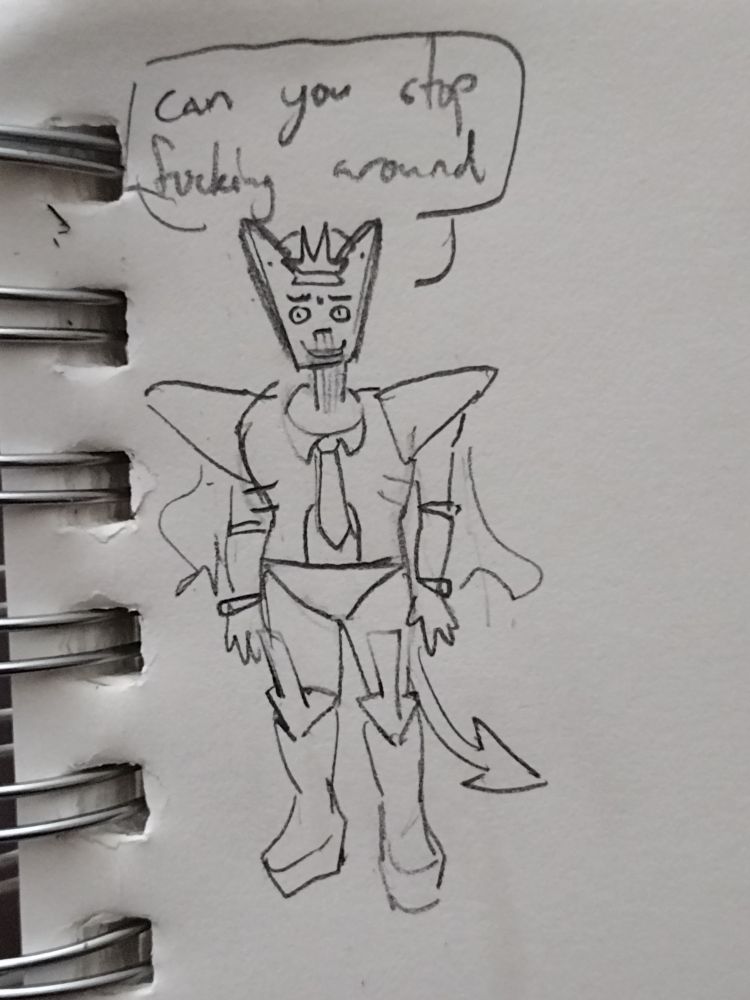 can you stop
fucking around